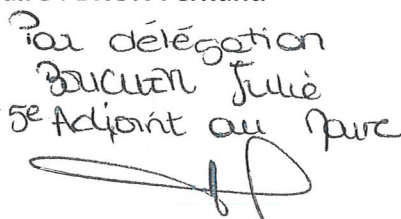 Par délégation
Julie
5e Adjoint au Maire